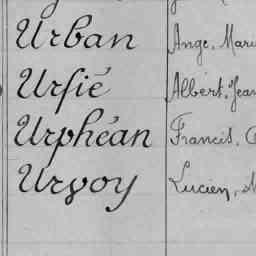 Urban Ange, Mari
Ursié Albert, Jean
Urphéan Francis,
Urvoy Lucien,